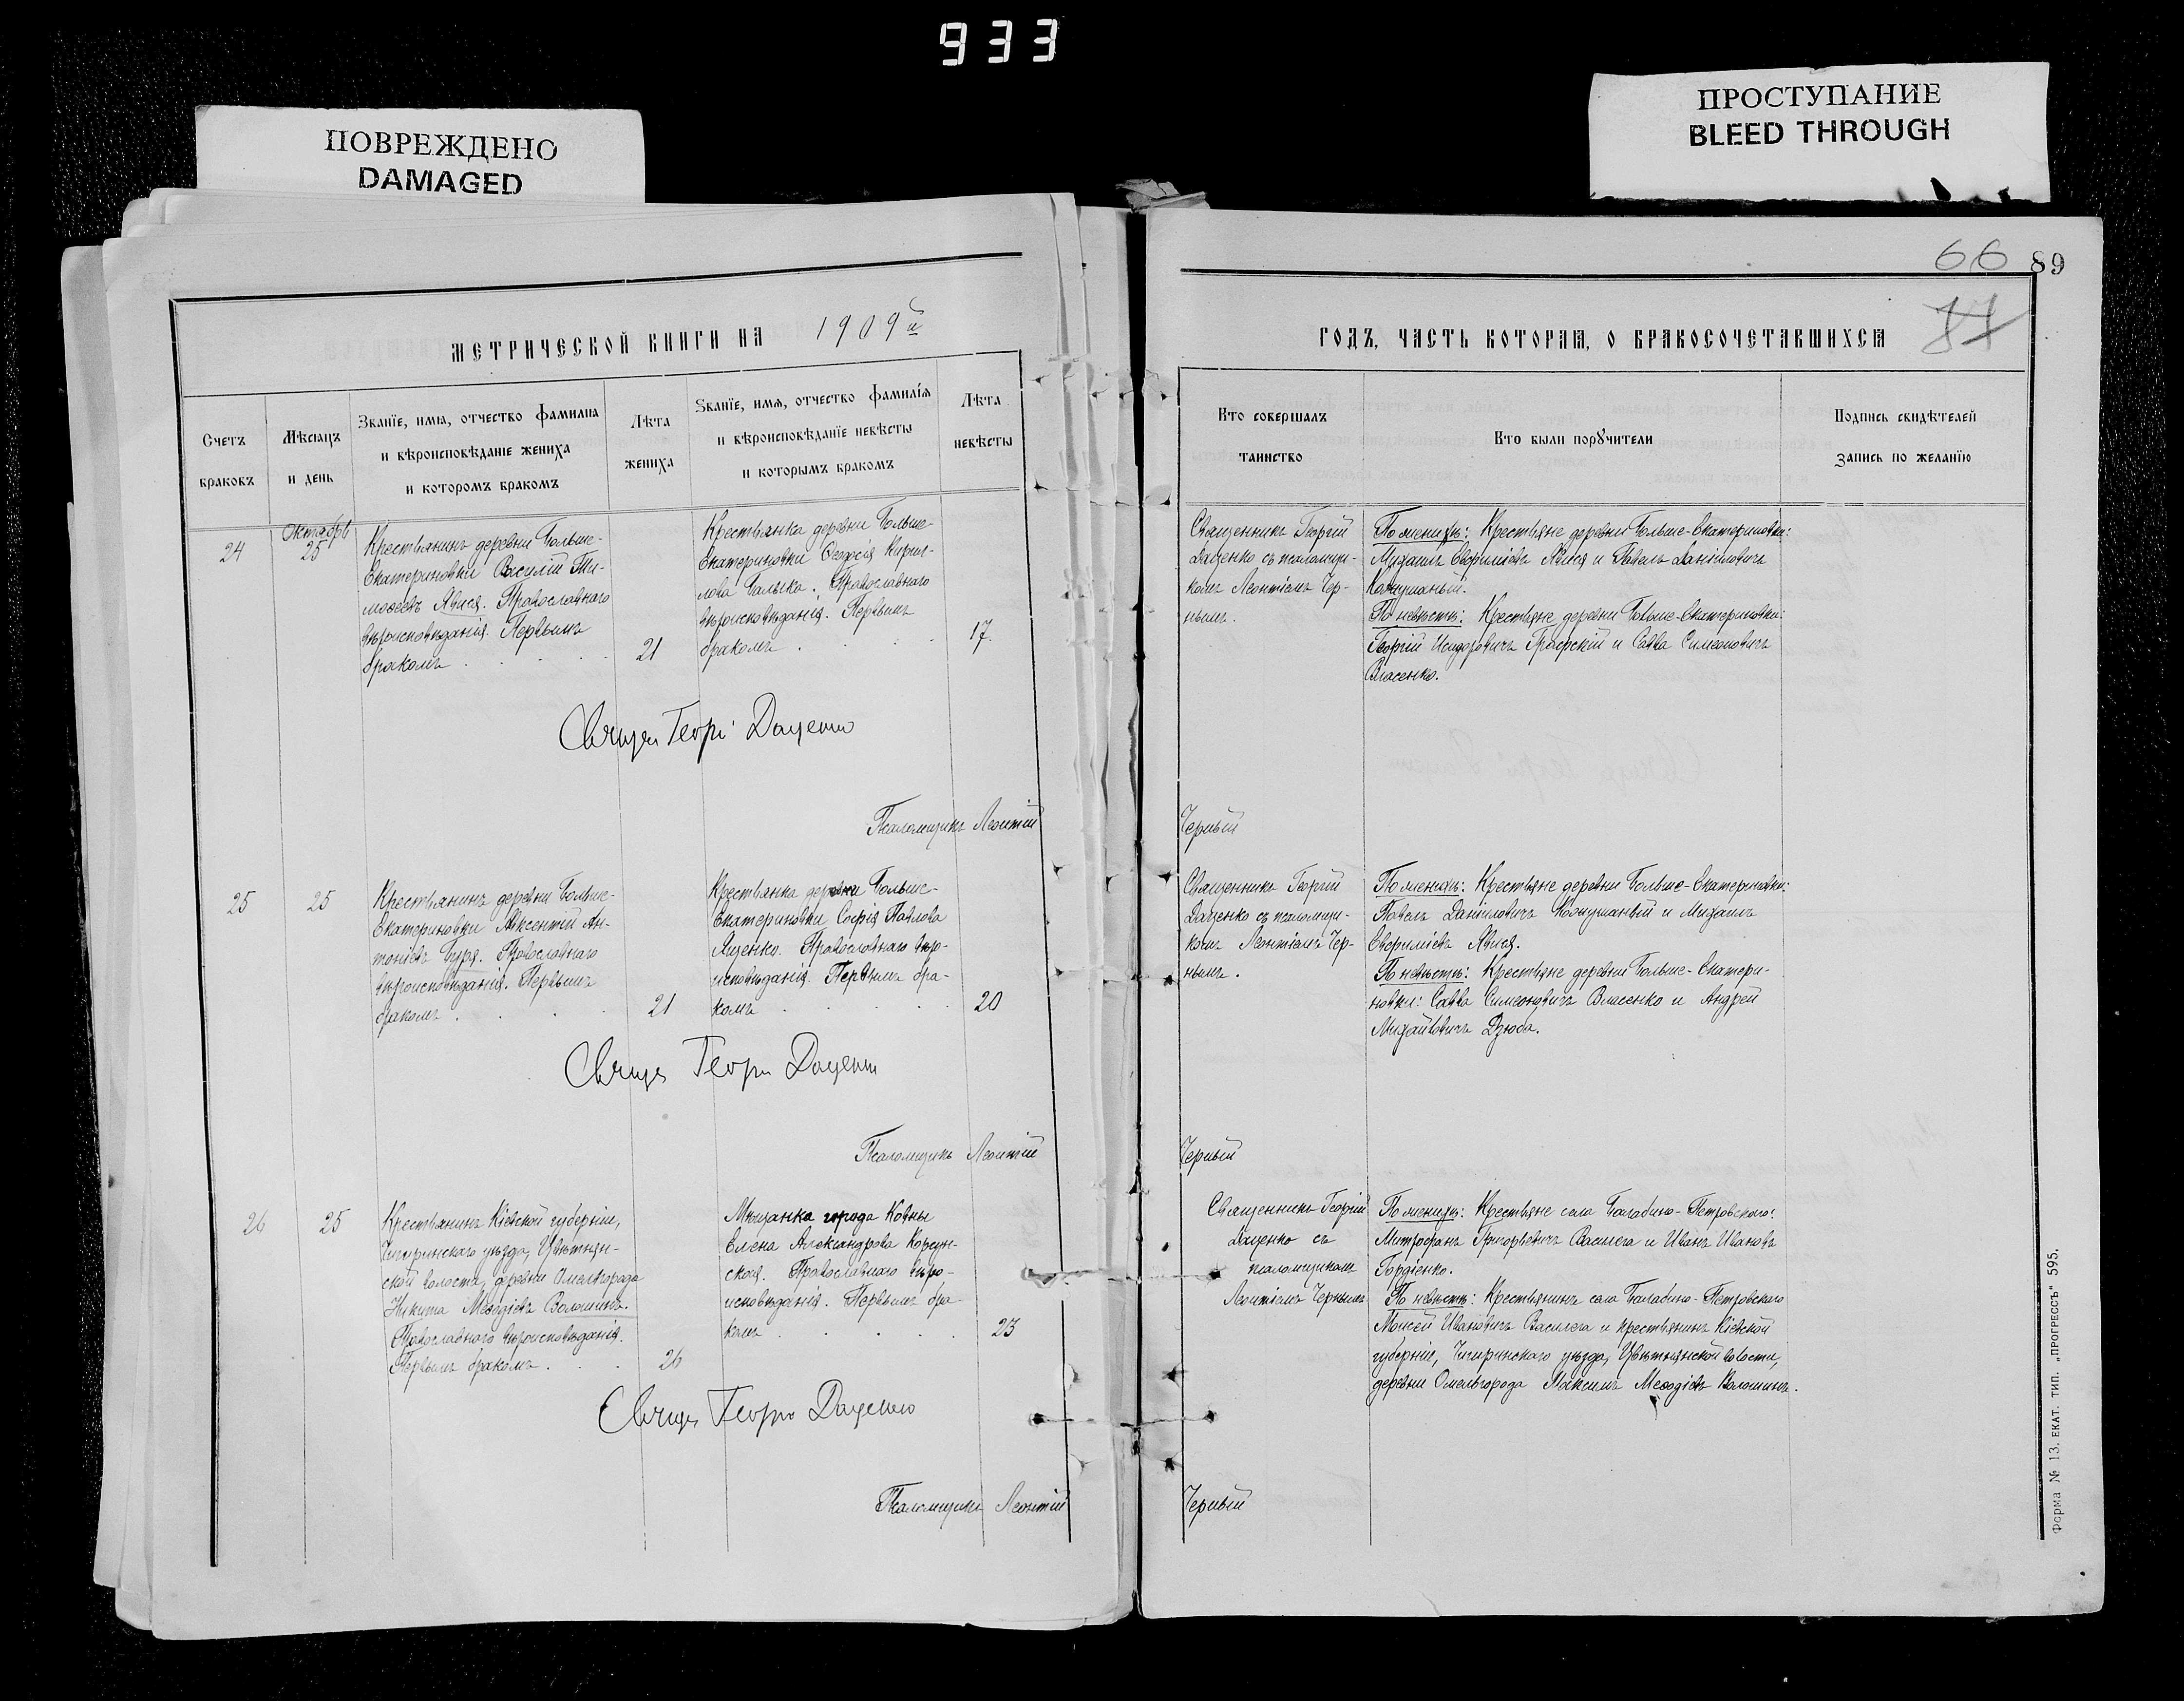 933
ПОВРЕЖДЕНО
DAMAGED
ПРОСТУПАНИЕ
BLEED THROUGH
66
89
МЕТРИЧЕСКОЙ КНИГИ НА 1909й
ГОДЪ, ЧАСТЬ ВТОРАЯ, О БРАКОСОЧЕТАВШИХСЯ
Счетъ
браковъ
Мѣсяцъ
и день
Званїе, имя, отчество фамилия
и вѣроисповѣданїе жениха
и которомъ бракомъ
Лѣта
жениха
Званїе, имя, отчество фамилїя
и вѣроисповѣданїе невѣсты
и которымъ бракомъ
Лѣта
невѣсты
Кто совершалъ
таинство
Кто были поручители
Подпись свидѣтелей
запись по желанїю
24
Октябрь
25
Крестьянинъ деревни Больше-
Екатериновки Василій Ти-
моѳеевъ Явися. Православнаго
вѣроисповѣданія. Первымъ
бракомъ
21
Крестьянка деревни Больше-
Екатериновки Ѳеодосія Кирил-
лова Балыка. Православнаго
вѣроисповѣданія. Первымъ
бракомъ
17.
Священникъ Георгій
Даценко съ псаломщи-
комъ Леонтіемъ Чер-
нымъ.
По женихѣ: Крестьяне деревни Больше-Екатериновки:
Михаилъ Евфиміевъ Явися и Павелъ Даніиловичъ
Кожушаный.
По невѣстѣ: Крестьяне деревни Больше-Екатериновки:
Георгій Исидоровичъ Графскій и Савва Симеоновичъ
Власенко.
Свящ. Георгі Даценко
Псаломщикъ Леонтій Черный
25
25
Крестьянинъ деревни Больше-
Екатериновки Авксентій Ан-
тоніевъ Буря. Православнаго
вѣроисповѣданія. Первымъ
бракомъ
21
Крестьянка деревни Больше-
Екатериновки Софія Павлова
Яценко. Православнаго вѣро-
исповѣданія. Первымъ бра-
комъ
20
Священникъ Георгій
Даценко съ псаломщи-
комъ Леонтіемъ Чер-
нымъ.
По женихѣ: Крестьяне деревни Больше-Екатериновки:
Павелъ Даніиловичъ Кожушаный и Михаилъ
Евфиміевъ Явися.
По невѣстѣ: Крестьяне деревни Больше-Екатери-
новки: Савва Симеоновичъ Власенко и Андрей
Михайловичъ Дзюба.
Свящ. Георги Даценко
Псаломщикъ Леонтій Черный
26
25
Крестьянинъ Кіевской губерніи,
Чигиринскаго уѣзда, Цвѣтнян-
ской волости, деревни Омельгорода
Никита Меѳодіевъ Волошинъ.
Православнаго вѣроисповѣданія.
Первымъ бракомъ
26
Мѣщанка города Ковны
Елена Александрова Корсун-
ская. Православнаго вѣро-
исповѣданія. Первымъ бра-
комъ
23
Священникъ Георгій
Даценко съ
псаломщикомъ
Леонтіемъ Чернымъ
По женихѣ: Крестьяне села Балабино-Петровскаго:
Митрофанъ Григорьевичъ Василега и Иванъ Ивановъ
Гордіенко.
По невѣстѣ: Крестьянинъ села Балабино-Петровскаго
Моисей Ивановичъ Василега и крестьянинъ Кіевской
губерніи, Чигиринскаго уѣзда, Цвѣтнянской волости,
деревни Омельгорода Максимъ Меѳодіевъ Волошинъ.
Свящ. Георгій Даценко
Псаломщикъ Леонтій Черный
Форма № 13. ЕКАТ. ТИП. „ПРОГРЕССЪ" 595.